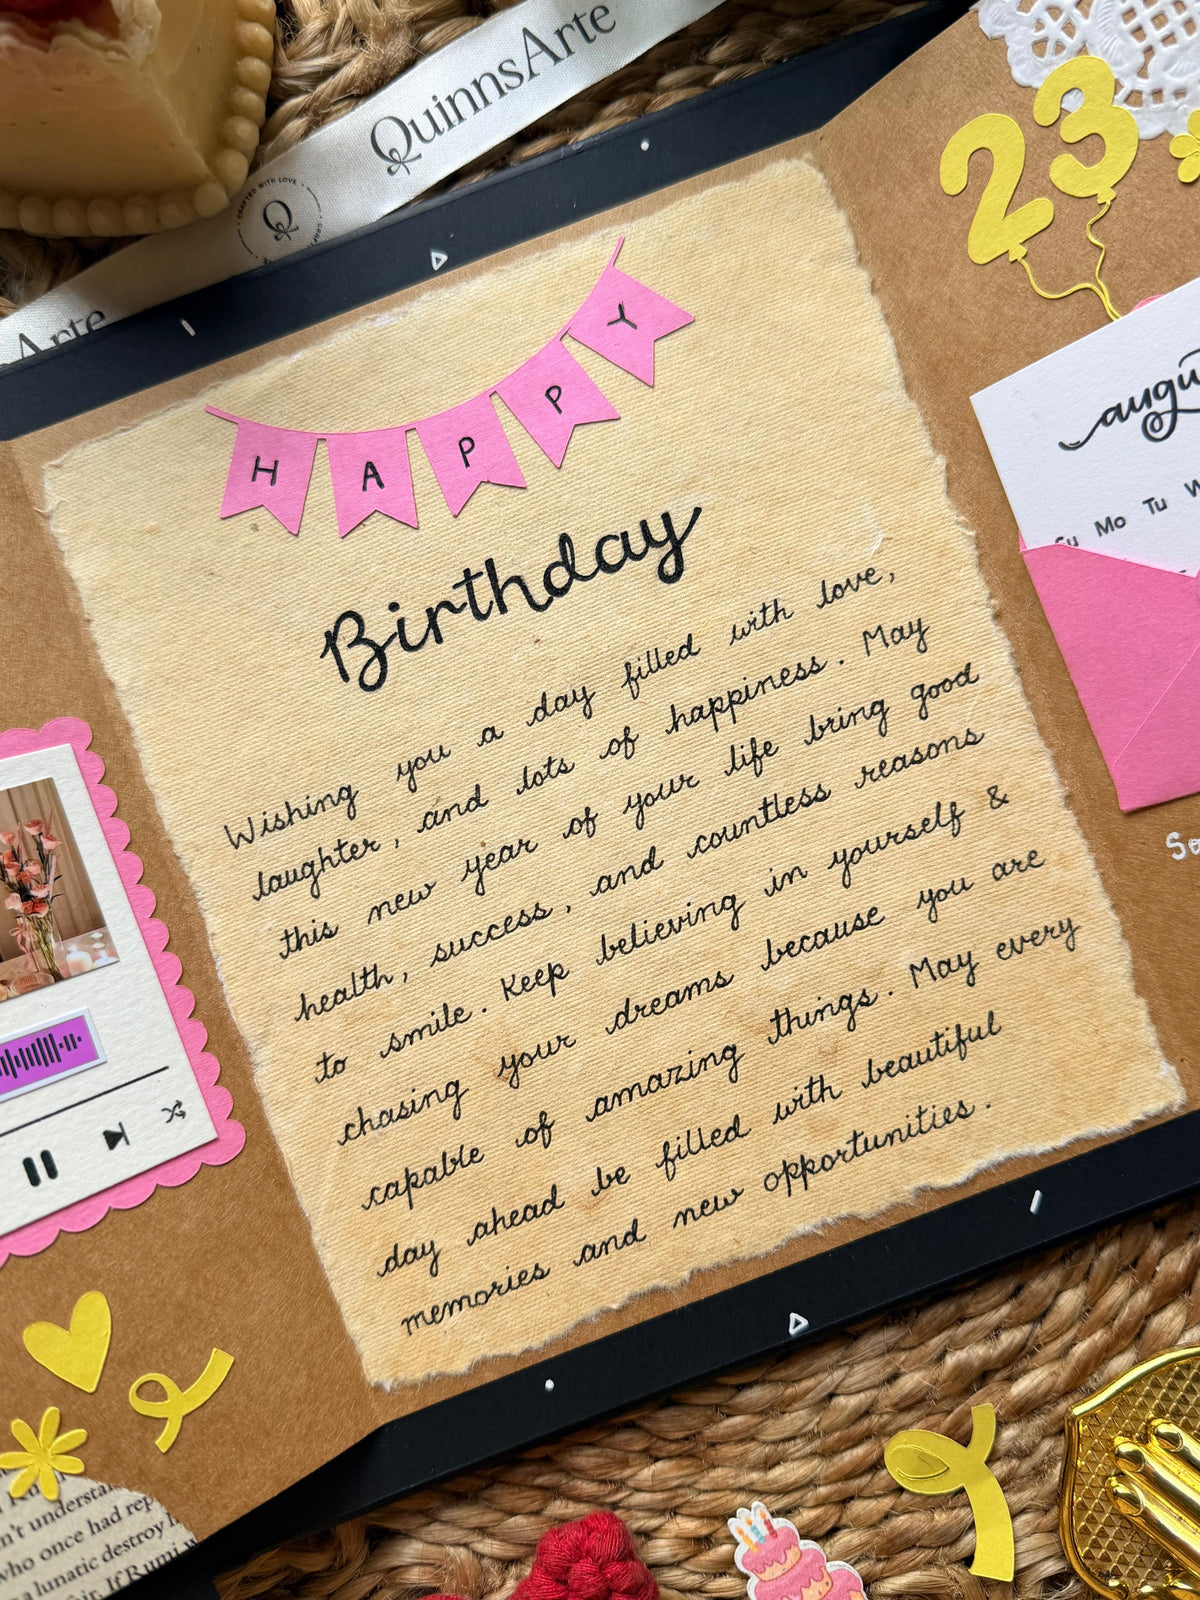 QuinnsArte
CRAFTED WITH LOVE
Q
Arte
23
HAPPY
Birthday
Wishing you a day filled with love,
laughter, and lots of happiness. May
this new year of your life bring good
health, success, and countless reasons
to smile. Keep believing in yourself &
chasing your dreams because you are
capable of amazing things. May every
day ahead be filled with beautiful
memories and new opportunities.
augu
Su Mo Tu W
n't understa
who once had rep
a lunatic destroy
If Rumi